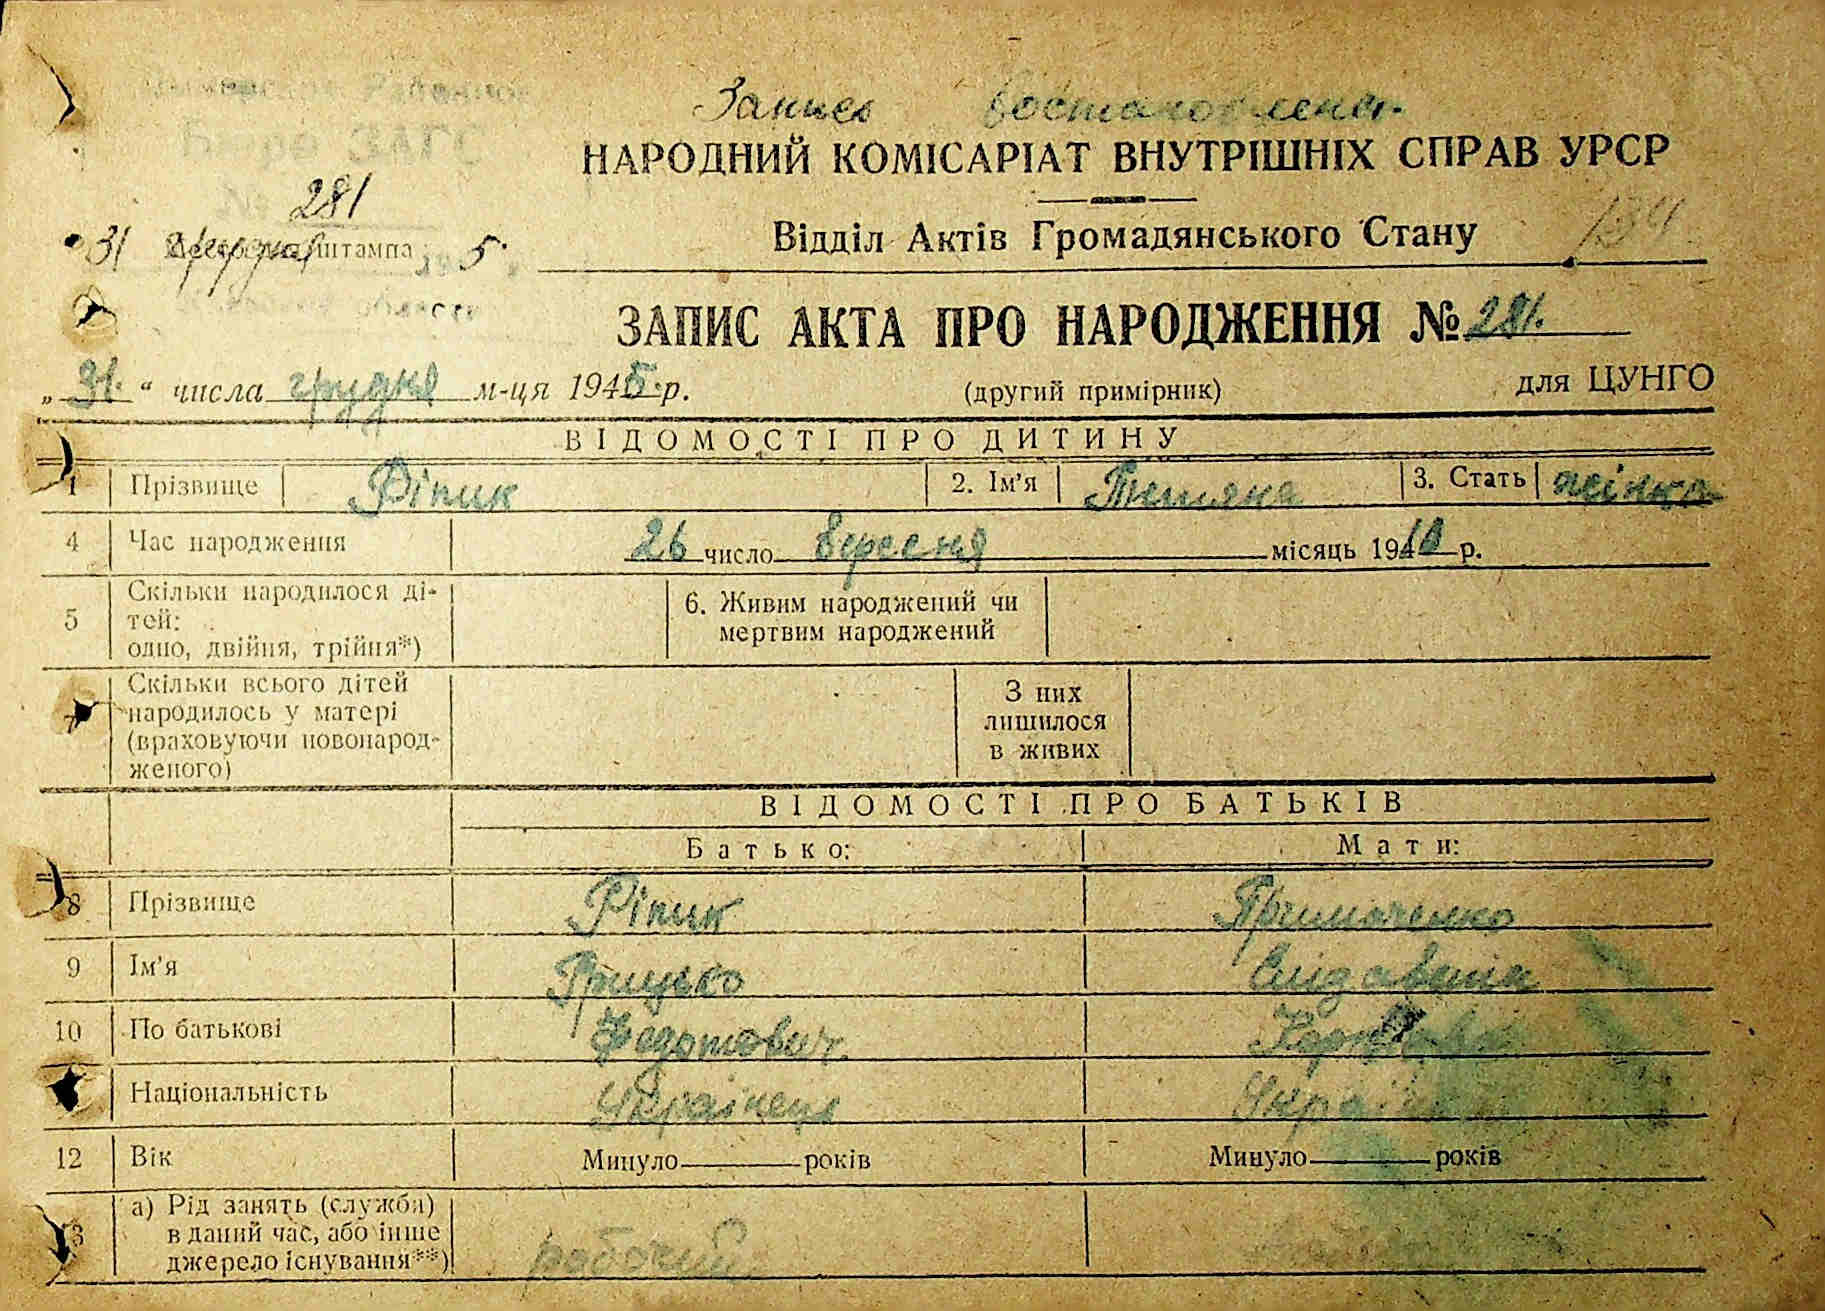 Запись востановлена.
НАРОДНИЙ КОМІСАРІАТ ВНУТРІШНІХ СПРАВ УРСР
Бюро ЗАГС
№ 281
Відділ Актів Громадянського Стану 134
31 грудня штампа 5
области
ЗАПИС АКТА ПРО НАРОДЖЕННЯ № 281.
„31.“ числа грудня м-ця 1945 р. (другий примірник) для ЦУНГО
ВІДОМОСТІ ПРО ДИТИНУ
1 Прізвище Ріпик 2. Ім'я Тетяна 3. Стать жінка
4 Час народження 26 число вересня місяць 1910 р.
5 Скільки народилося ді-
тей:
одно, двійня, трійня*)
6. Живим народжений чи
мертвим народжений
7 Скільки всього дітей
народилось у матері
(враховуючи новонарод-
женого)
З них
лишилося
в живих
ВІДОМОСТІ ПРО БАТЬКІВ
Батько: Мати:
8 Прізвище Ріпик Примаченко
9 Ім'я Грицько Єлізавета
10 По батькові Федотович
Національність Українець Українка
12 Вік Минуло років Минуло років
13 а) Рід занять (служби)
в даний час, або інше
джерело існування**) робочий